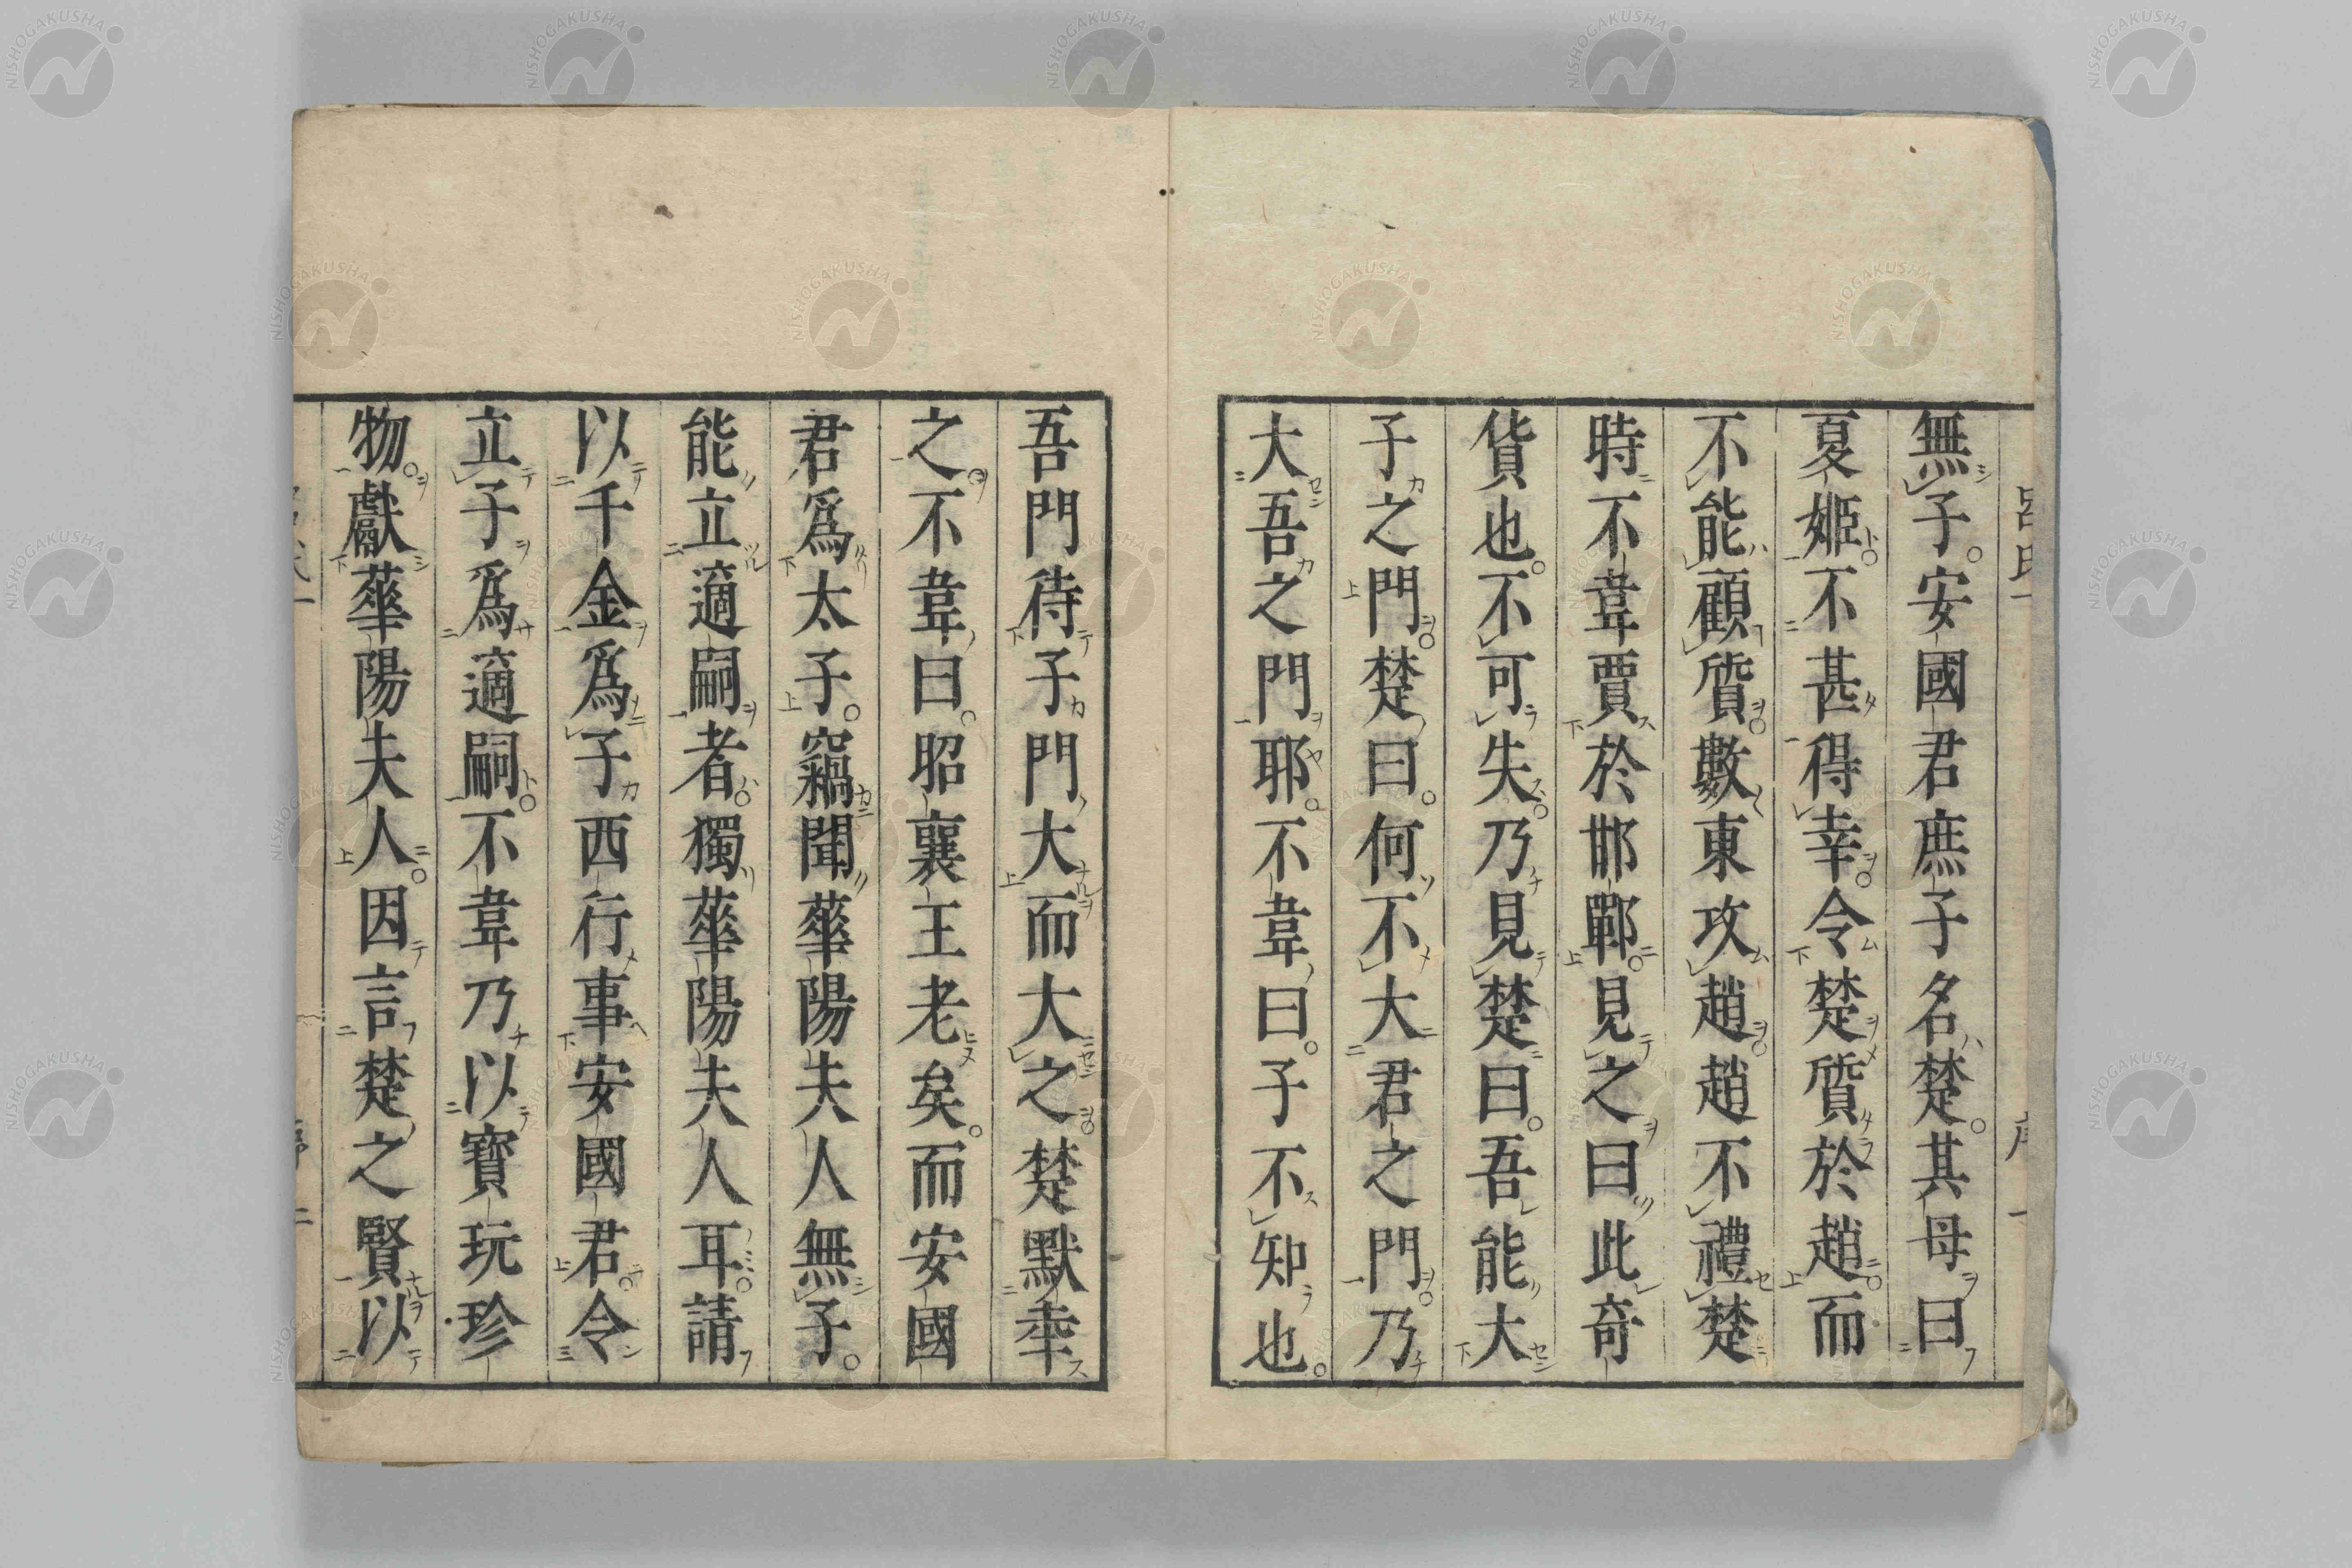 無子。安國君庶子名楚。其母曰
夏姬。不甚得幸。令楚質於趙。而
不能顧質。數東攻趙。趙不禮楚
時不韋賈於邯鄲。見之曰此奇
貨也。不可失。乃見楚曰。吾能大
子之門。楚曰。何不大君之門。乃
大吾之門耶。不韋曰。子不知也。
吾門待子門大而大之。楚默幸
之。不韋曰。昭襄王老矣。而安國
君爲太子。竊聞華陽夫人無子。
能立適嗣者。獨華陽夫人耳。請
以千金爲子西行事安國君。令
立子爲適嗣。不韋乃以寶玩珍
物。獻華陽夫人。因言楚之賢以
NISHOGAKUSHA